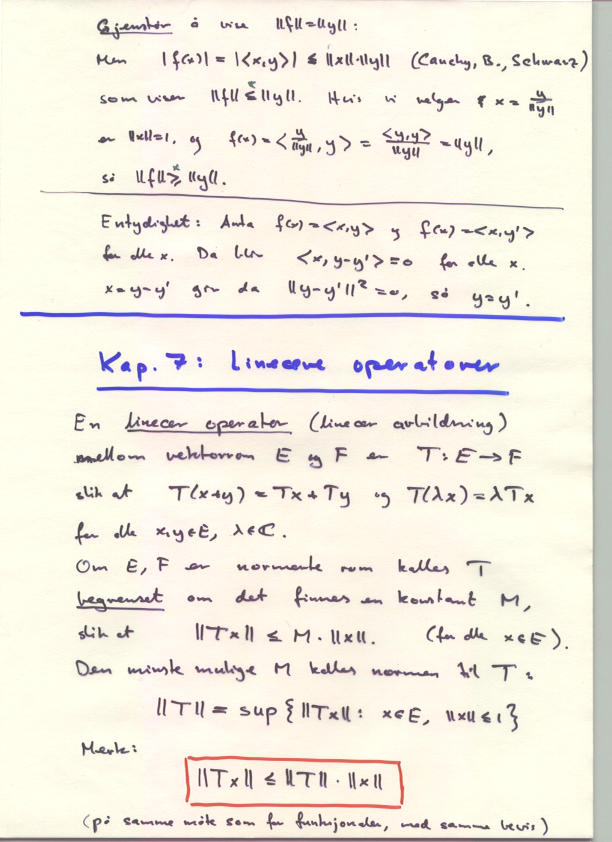 Gjenstår å vise ||f||=||y||:
Men |f(x)| = |<x,y>| ≤ ||x||·||y|| (Cauchy, B., Schwarz)
som viser ||f|| ≤ ||y||. Hvis vi velger x = y/||y||
er ||x||=1, og f(x) = <y/||y||, y> = <y,y>/||y|| = ||y||,
så ||f|| ≥ ||y||.
Entydighet: Anta f(x)=<x,y> og f(x)=<x,y'>
for alle x. Da blir <x, y-y'>=0 for alle x.
x=y-y' gir da ||y-y'||²=0, så y=y'.
Kap. 7: Lineære operatorer
En lineær operator (lineær avbildning)
mellom vektorrom E og F er T: E→F
slik at T(x+y) = Tx+Ty og T(λx)=λTx
for alle x,y∈E, λ∈ℂ.
Om E, F er normerte rom kalles T
begrenset om det finnes en konstant M,
slik at ||Tx|| ≤ M·||x||. (for alle x∈E).
Den minste mulige M kalles normen til T:
||T|| = sup{||Tx||: x∈E, ||x||≤1}
Merk:
||Tx|| ≤ ||T||·||x||
(på samme måte som for funksjonaler, med samme bevis)